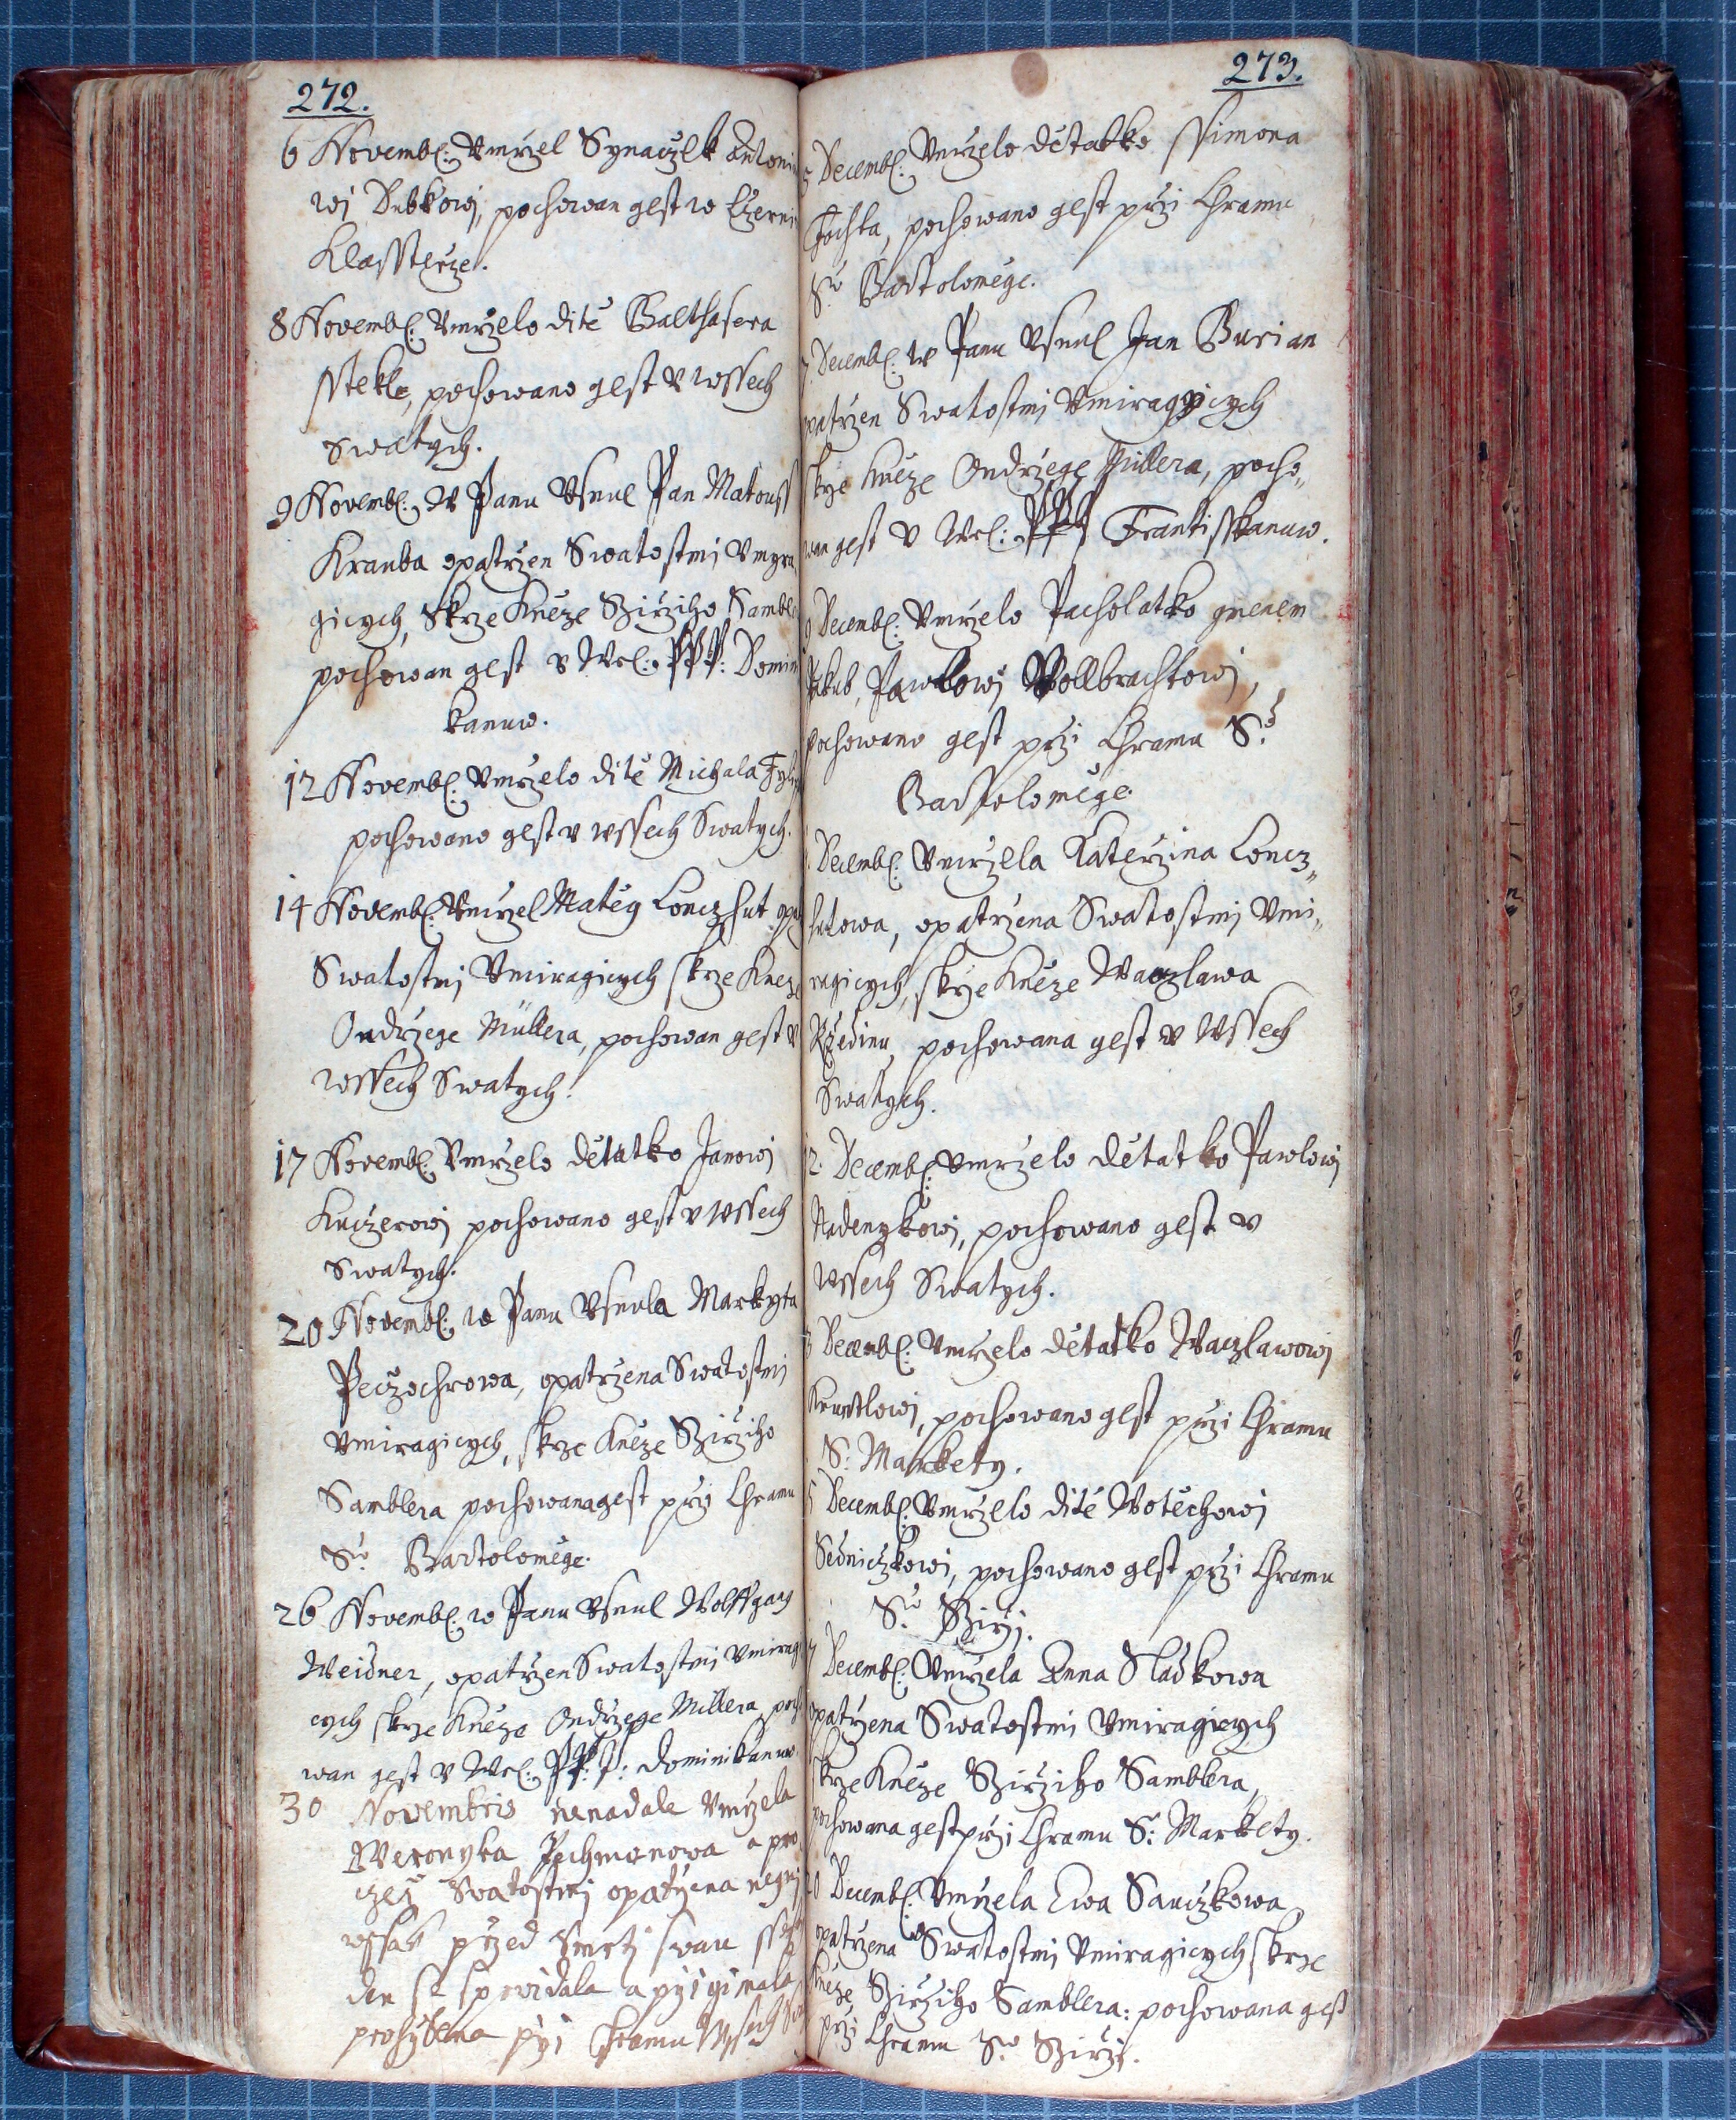 272.
6 Novemb: Vmrzel Synaczek Antoni
wj Dubkowj, pochowan gest w Czerni
Klassterze.
8 Novemb: Vmrzelo dite Balthasera
Stekle, pochowano gest v wssech
Swatych.
9 Novemb: W Panu Vsnul Pan Matouss
Krauba opatrzen Swatostmj Vmyra
gicych, Skrze Knęze Sziržiho Samble
pochowan gest v Wel: PPP: Domini
kanuw.
12 Novemb: Vmrzelo dite Michala
pochowano gest v wssech Swatych.
14 Novemb: Vmrzel Matěg Lonczhut opa
Swatostmj Vmiragicych skrze Kneze
Ondržege Müllera, pochowan gest v
wssech Swatych.
17 Novemb: Vmrzelo dětatko Janowj
Kuczerowj pochowano gest v wssech
Swatych.
20 Novemb: w Panu Vsnula Markyta
Peczochowa, opatrzena Swatostmj
Vmiragicych, skrze Knęze Sziržiho
Samblera pochowana gest przi Chramu
Sº Bartolomege.
26 Novemb: w Panu Vsnul Wolffgang
Weidner, opatrzen Swatostmi Vmirag
cych skrze Knęze Ondržege Millera, poch
wan gest v Wel: PP: P: Dominikanuw
30 Novembris nenadale Vmrzela
Weronyka Pechmonowa a pro
czež Swatostmj opatrzena negni
wssak przed smrtj swau
den se spovidala a przigimala
prohržbena przi Chramu Wssech Sw
273.
5 Decemb: Vmrzelo dětatko Ssimona
Jochla, pochowano gest przi Chramu
Sº Bartolomege.
7. Decemb: w Panu Vsnul Jan Burian
opatrzen Swatostmj Vmiragicych
skrze Knęze Ondržege Millera, pocho„
wan gest v Wel: PPP Frantisskanuw.
9 Decemb: Vmrzelo Pacholatko gmenem
Jakub, Pawlowj Wollbrachtowj,
pochowano gest przi Chramu Sº
Bartolomege.
Decemb: Vmrzella Katerzina Loncz„
hutowa, opatrzena Swatostmj Vmi„
ragicych, skrze Knęze Waczlawa
Rzedinu, pochowana gest v Wssech
Swatych.
2. Decemb: Vmrzelo dětatko Pawlowj
Nadenykowj, pochowano gest v
Wssech Swatych.
3 Decemb: Vmrzelo dětatko Waczlawowj
pochowano gest przi Chramu
S: Markety.
5 Decemb: Vmrzelo dite Wotěchowj
Sedniczkowi, pochowano gest przi Chramu
Sº Sziržj.
7 Decemb: Vmrzela Anna Sladkowa
opatrzena Swatostmi Vmiragicych
skrze Knęze Sziržiho Samblera,
pochowana gest przi Chramu S: Markety.
20 Decemb: Vmrzela Ewa Sauczkowa
opatrzena Swatostmi Vmiragicych skrze
Knęze Sziržiho Samblera: pochowana gest
przi Chramu Sº Sziržj.